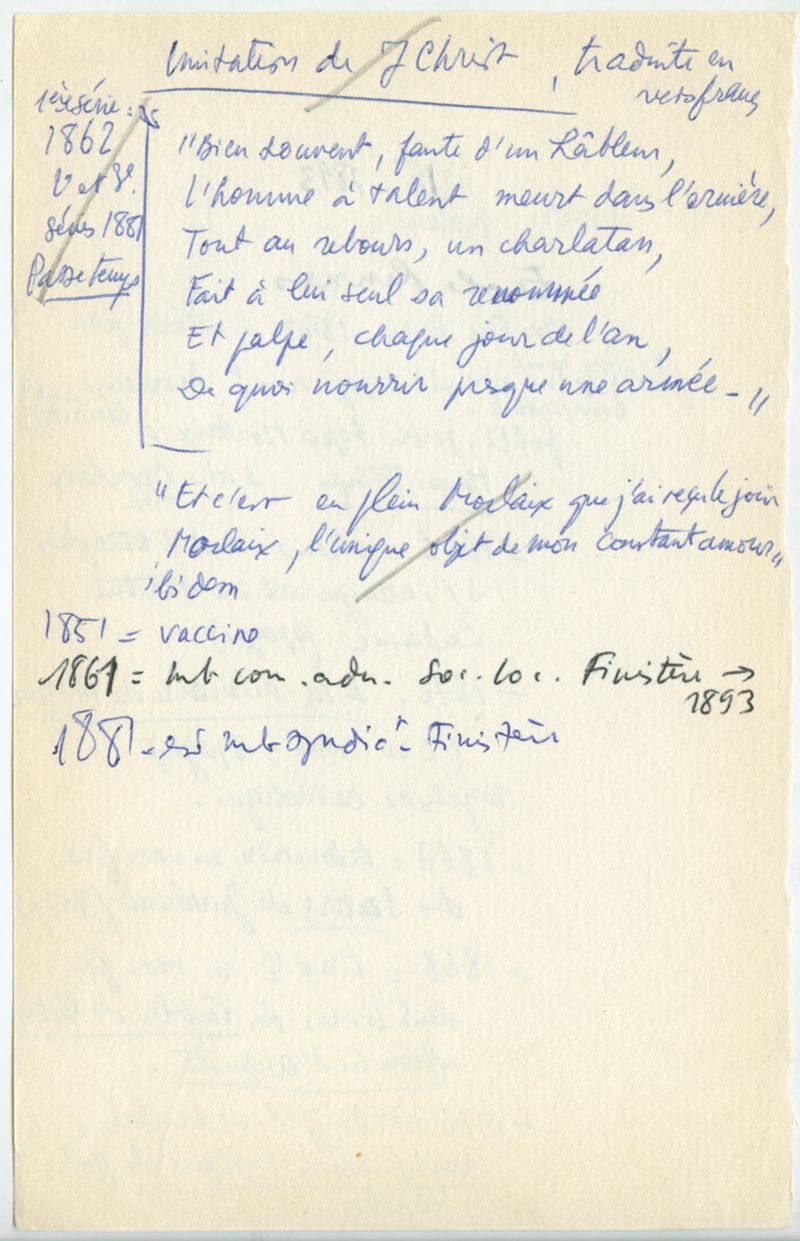 Imitation de J Christ, traduite en
vers français
1ère série :
1862
2e et 3e
séries 1881
Passe temps
"Bien souvent, faute d'un hâbleur,
L'homme à talent meurt dans l'ornière,
Tout au rebours, un charlatan,
Fait à lui seul sa renommée
Et palpe, chaque jour de l'an,
De quoi nourrir presque une armée - "
"Et c'est en plein Morlaix que j'ai reçu le jour
Morlaix, l'unique objet de mon constant amour"
ibidem
1851 = vaccine
1861 = mb con. adm. Soc. loc. Finistère →
1893
1881 - est mb syndic. Finistère